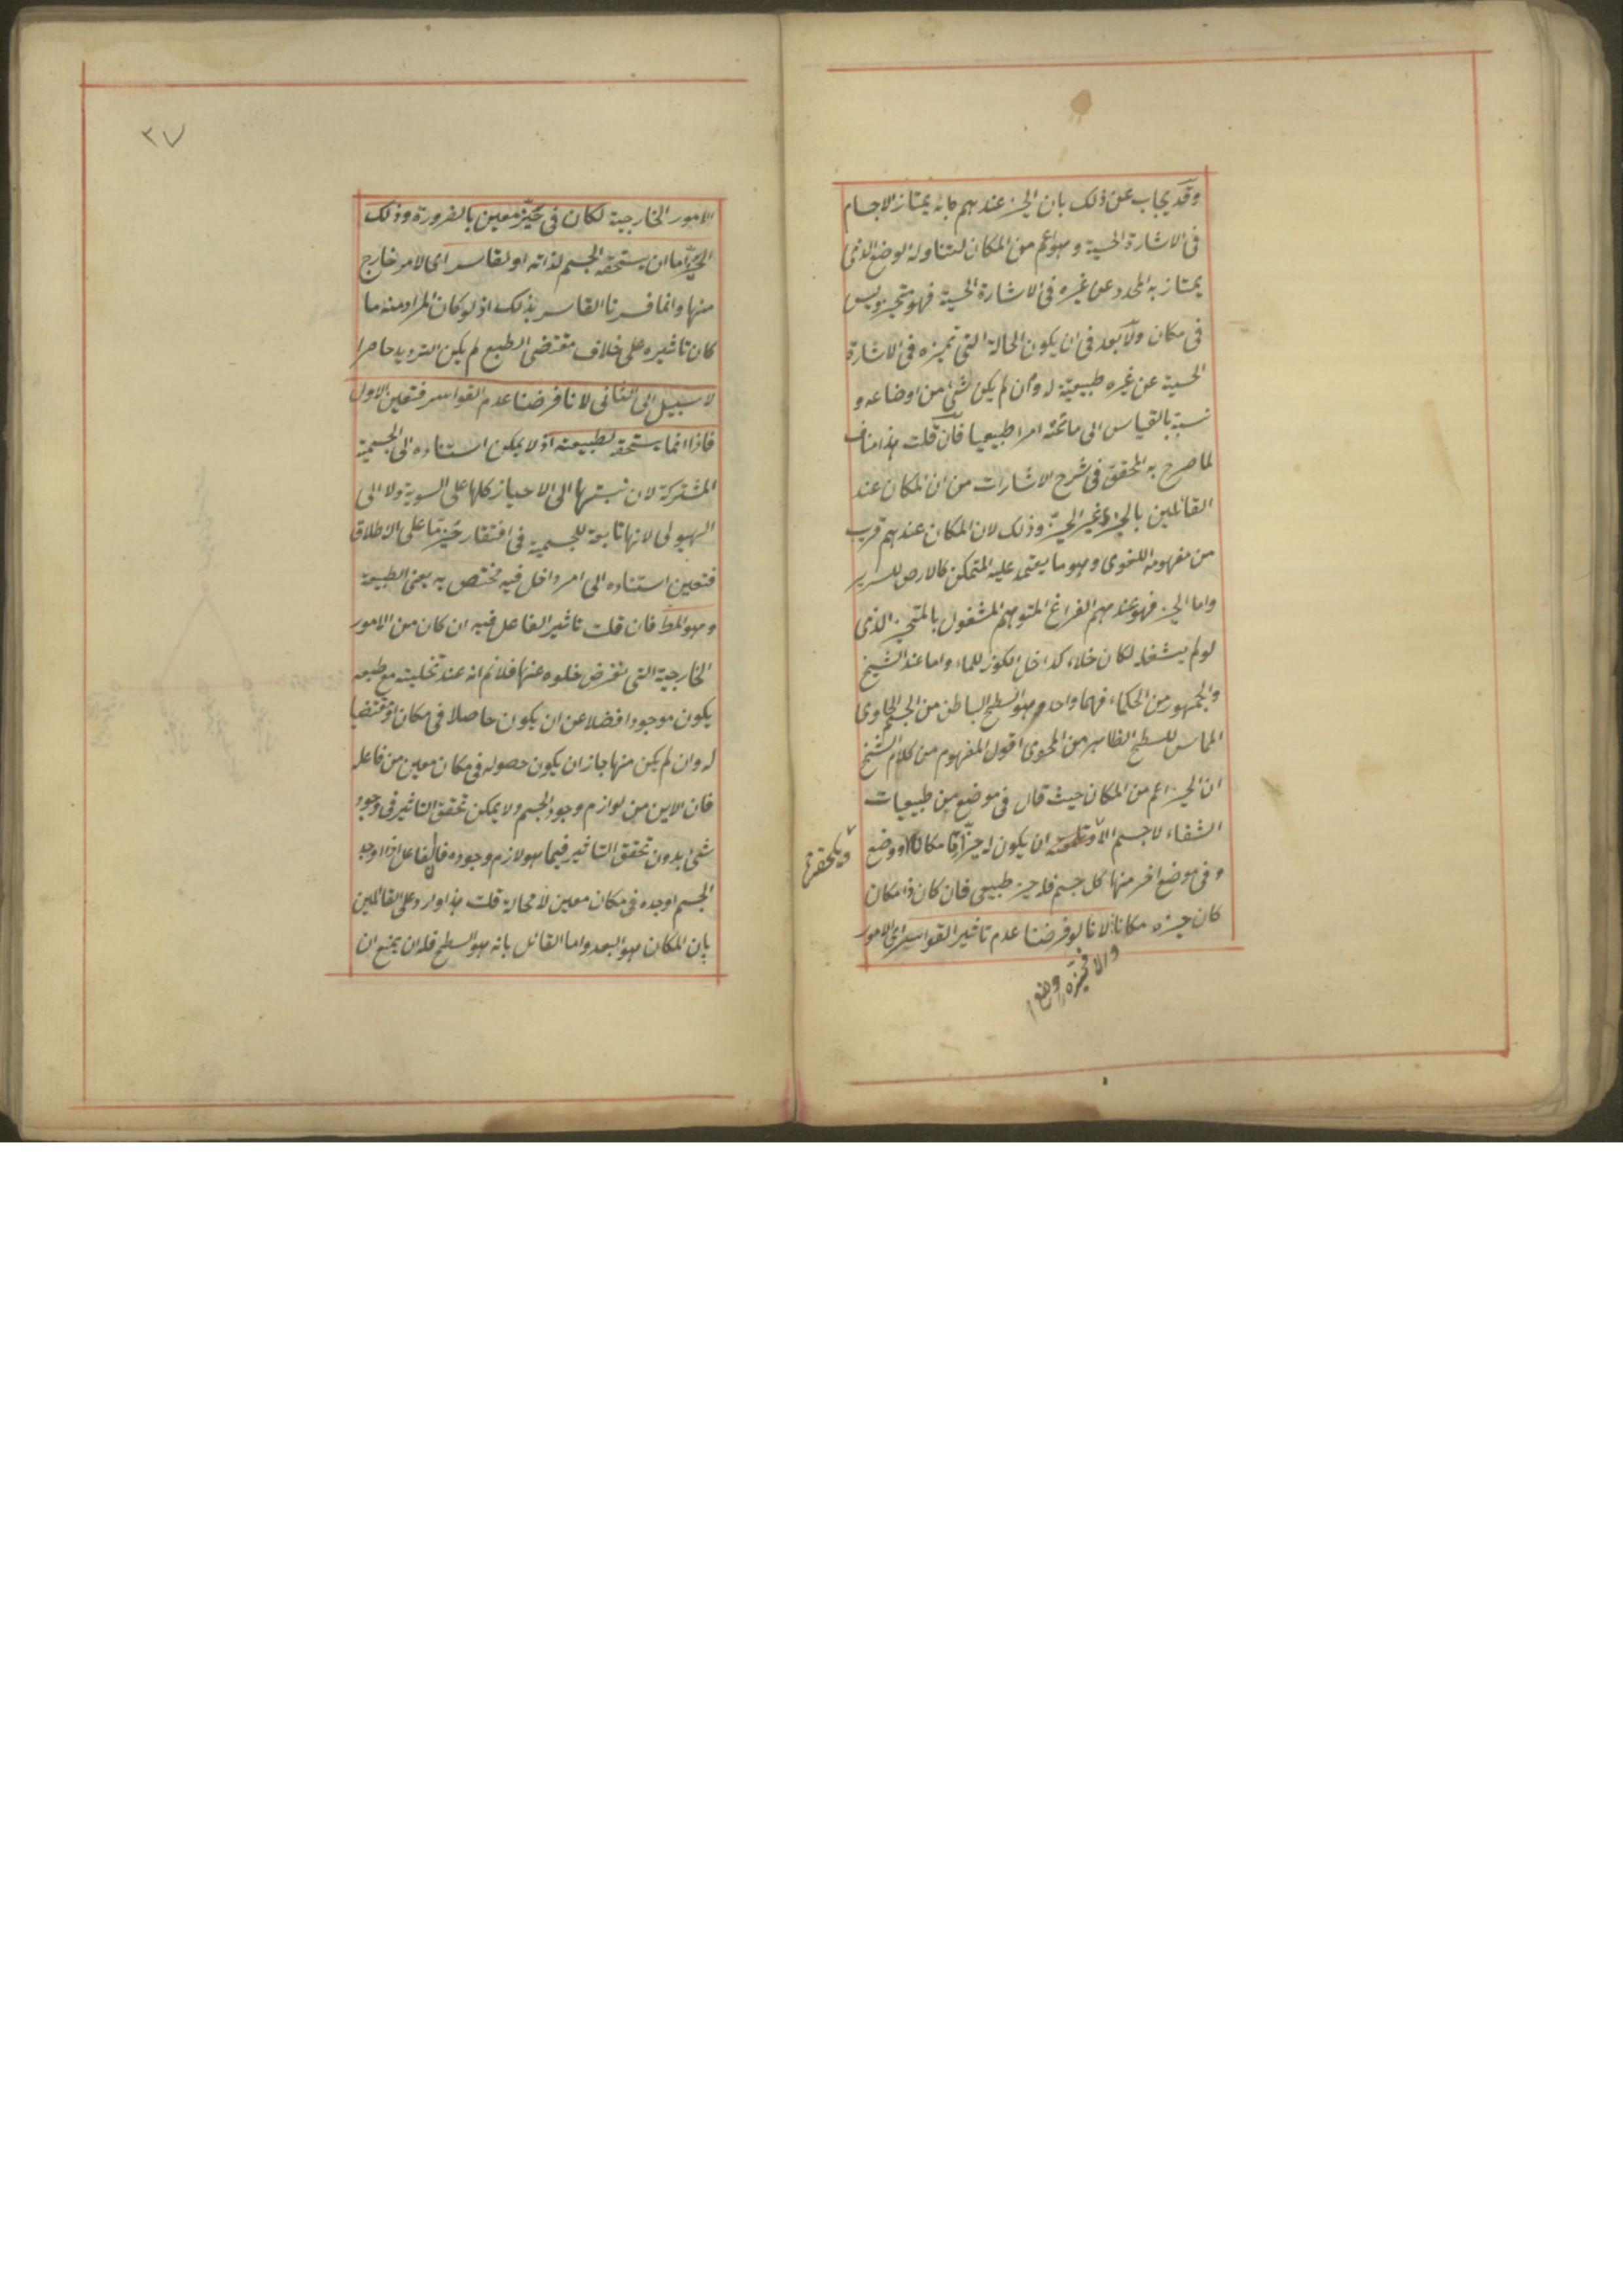 وقد يجاب عن ذلك بان الحيز عندهم ما به يمتاز الاجسام
فى الاشارة الحسية وهو اعم من المكان لتناوله الوضع الذى
يمتاز به المحدد عن غيره فى الاشارة الحسية فهو متحيز وليس
فى مكان ولا بعد فى ان يكون الحالة التى تميزه فى الاشارة
الحسية عن غيره طبيعية له وان لم يكن شئ من اوضاعه و
نسبة بالقياس الى ما تحته امرا طبيعيا فان قلت هذا مناف
لما صرح به المحقق فى شرح الاشارات من ان المكان عند
القائلين بالجزء غير الحيز وذلك لان المكان عندهم قريب
من مفهومه اللغوى وهو ما يعتمد عليه المتمكن كالارض للسرير
واما الحيز فهو عندهم الفراغ المتوهم المشغول بالمتحيز الذى
لو لم يشغله لكان خلاء كداخل الكوز للماء واما عند الشيخ
والجمهور من الحكماء فهما واحد وهو السطح الباطن من الجسم الحاوى
المماس للسطح الظاهر من المحوى اقول المفهوم من كلام الشيخ
ان الحيز اعم من المكان حيث قال فى موضع من طبيعيات
الشفاء لا جسم الا ان يكون له حيز اما مكان او وضع
وفى موضع اخر منها كل جسم فله حيز طبيعى فان كان ذا مكان
كان حيزه مكانا لانا لو فرضنا عدم تاثير القواسر اى الامور
٢٧
الامور الخارجية لكان فى حيز معين بالضرورة وذلك
الحيز اما ان يستحقه الجسم لذاته او لقاسر اى لامر خارج
منها وانما فسرنا القاسر بذلك اذ لو كان المراد منه ما
كان تاثيره على خلاف مقتضى الطبع لم يكن الترديد حاصرا
لا سبيل الى الثانى لانا فرضنا عدم القواسر فتعين الاول
فاذا انما يستحقه لطبيعته اذ لا يمكن استناده الى الجسمية
المشتركة لان نسبتها الى الاحياز كلها على السوية ولا الى
الهيولى لانها تابعة للجسمية فى افتقار حيز ما على الاطلاق
فتعين استناده الى امر داخل فيه مختص به يعنى الطبيعة
وهو المط فان قلت تاثير الفاعل فيه ان كان من الامور
الخارجية التى نفرض خلوه عنها فلا نم انه عند تخليته مع طبعه
يكون موجودا فضلا عن ان يكون حاصلا فى مكان او مقتضيا
له وان لم يكن منها جاز ان يكون حصوله فى مكان معين من فاعله
فان الاين من لوازم وجود الجسم ولا يمكن تحقق التاثير فى وجود
شئ بدون تحقق التاثير فيما هو لازم وجوده فالفاعل اذا اوجد
الجسم اوجده فى مكان معين لا محالة قلت هذا وارد على القائلين
بان المكان هو البعد واما القائل بانه هو السطح فله ان يمنع ان